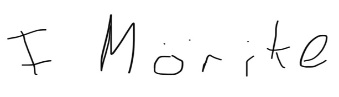 F Mörike